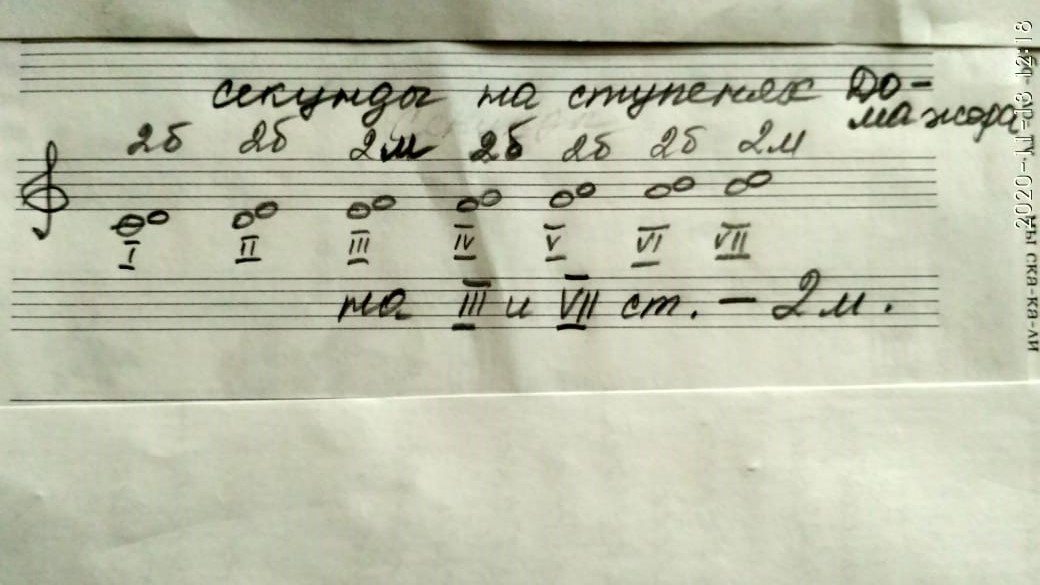 секунды на ступенях До-
мажора
2б 2б 2м 2б 2б 2б 2м
I II III IV V VI VII
на III и VII ст. – 2м.
2020-11-13 12:18
ска-ка-ли